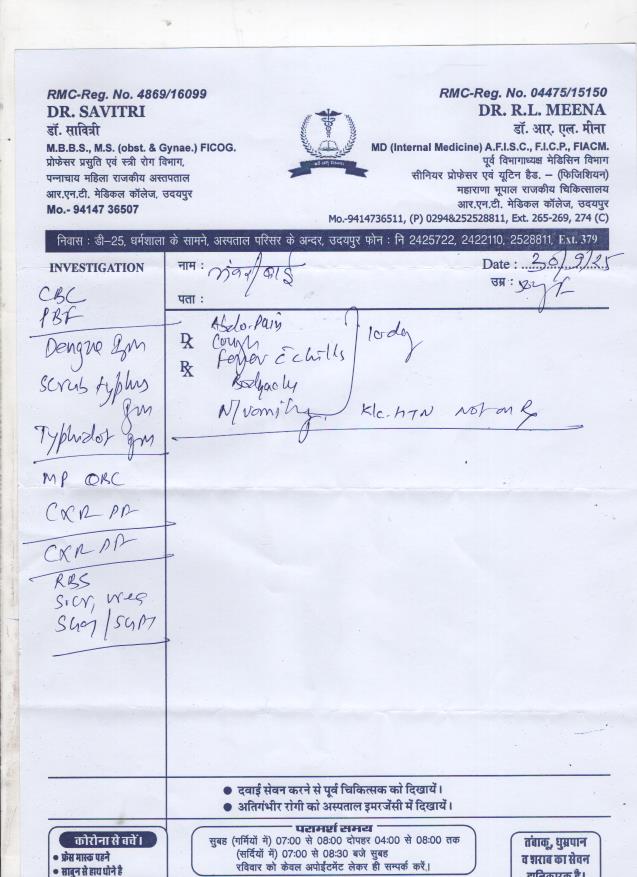 RMC-Reg. No. 4869/16099
DR. SAVITRI
डॉ. सावित्री
M.B.B.S., M.S. (obst. & Gynae.) FICOG.
प्रोफेसर प्रसुति एवं स्त्री रोग विभाग,
पन्नाचाय महिला राजकीय अस्पताल
आर.एन.टी. मेडिकल कॉलेज, उदयपुर
Mo.- 94147 36507
RMC-Reg. No. 04475/15150
DR. R.L. MEENA
डॉ. आर. एल. मीना
MD (Internal Medicine) A.F.I.S.C., F.I.C.P., FIACM.
पूर्व विभागाध्यक्ष मेडिसिन विभाग
सीनियर प्रोफेसर एवं यूटिन हैड. – (फिजिशियन)
महाराणा भूपाल राजकीय चिकित्सालय
आर.एन.टी. मेडिकल कॉलेज, उदयपुर
Mo.-9414736511, (P) 0294&252528811, Ext. 265-269, 274 (C)
निवास : डी-25, धर्मशाला के सामने, अस्पताल परिसर के अन्दर, उदयपुर फोन : नि 2425722, 2422110, 2528811, Ext. 379
INVESTIGATION
CBC
PBF
Dengue Igm
Scrub typhus
Igm
Typhidot Igm
MP QBC
CXR PA
CXR PA
RBS
S.Cr, urea
SGOT/SGPT
नाम : बाई
Date : 30/9/25
पता :
उम्र :
Abdo. Pain
Dx Cough
Rx Fever c̄ chills
Bodyache
N/vomiting
10 day
K/c. HTN Not on Rx
● दवाई सेवन करने से पूर्व चिकित्सक को दिखायें।
● अतिगंभीर रोगी को अस्पताल इमरजेंसी में दिखायें।
कोरोना से बचें।
● फ्रेस मास्क पहने
● साबुन से हाथ धोने है
परामर्श समय
सुबह (गर्मियों में) 07:00 से 08:00 दोपहर 04:00 से 08:00 तक
(सर्दियों में) 07:00 से 08:30 बजे सुबह
रविवार को केवल अपोईंटमेंट लेकर ही सम्पर्क करें।
तंबाकू, धुम्रपान
व शराब का सेवन
हानिकारक है।